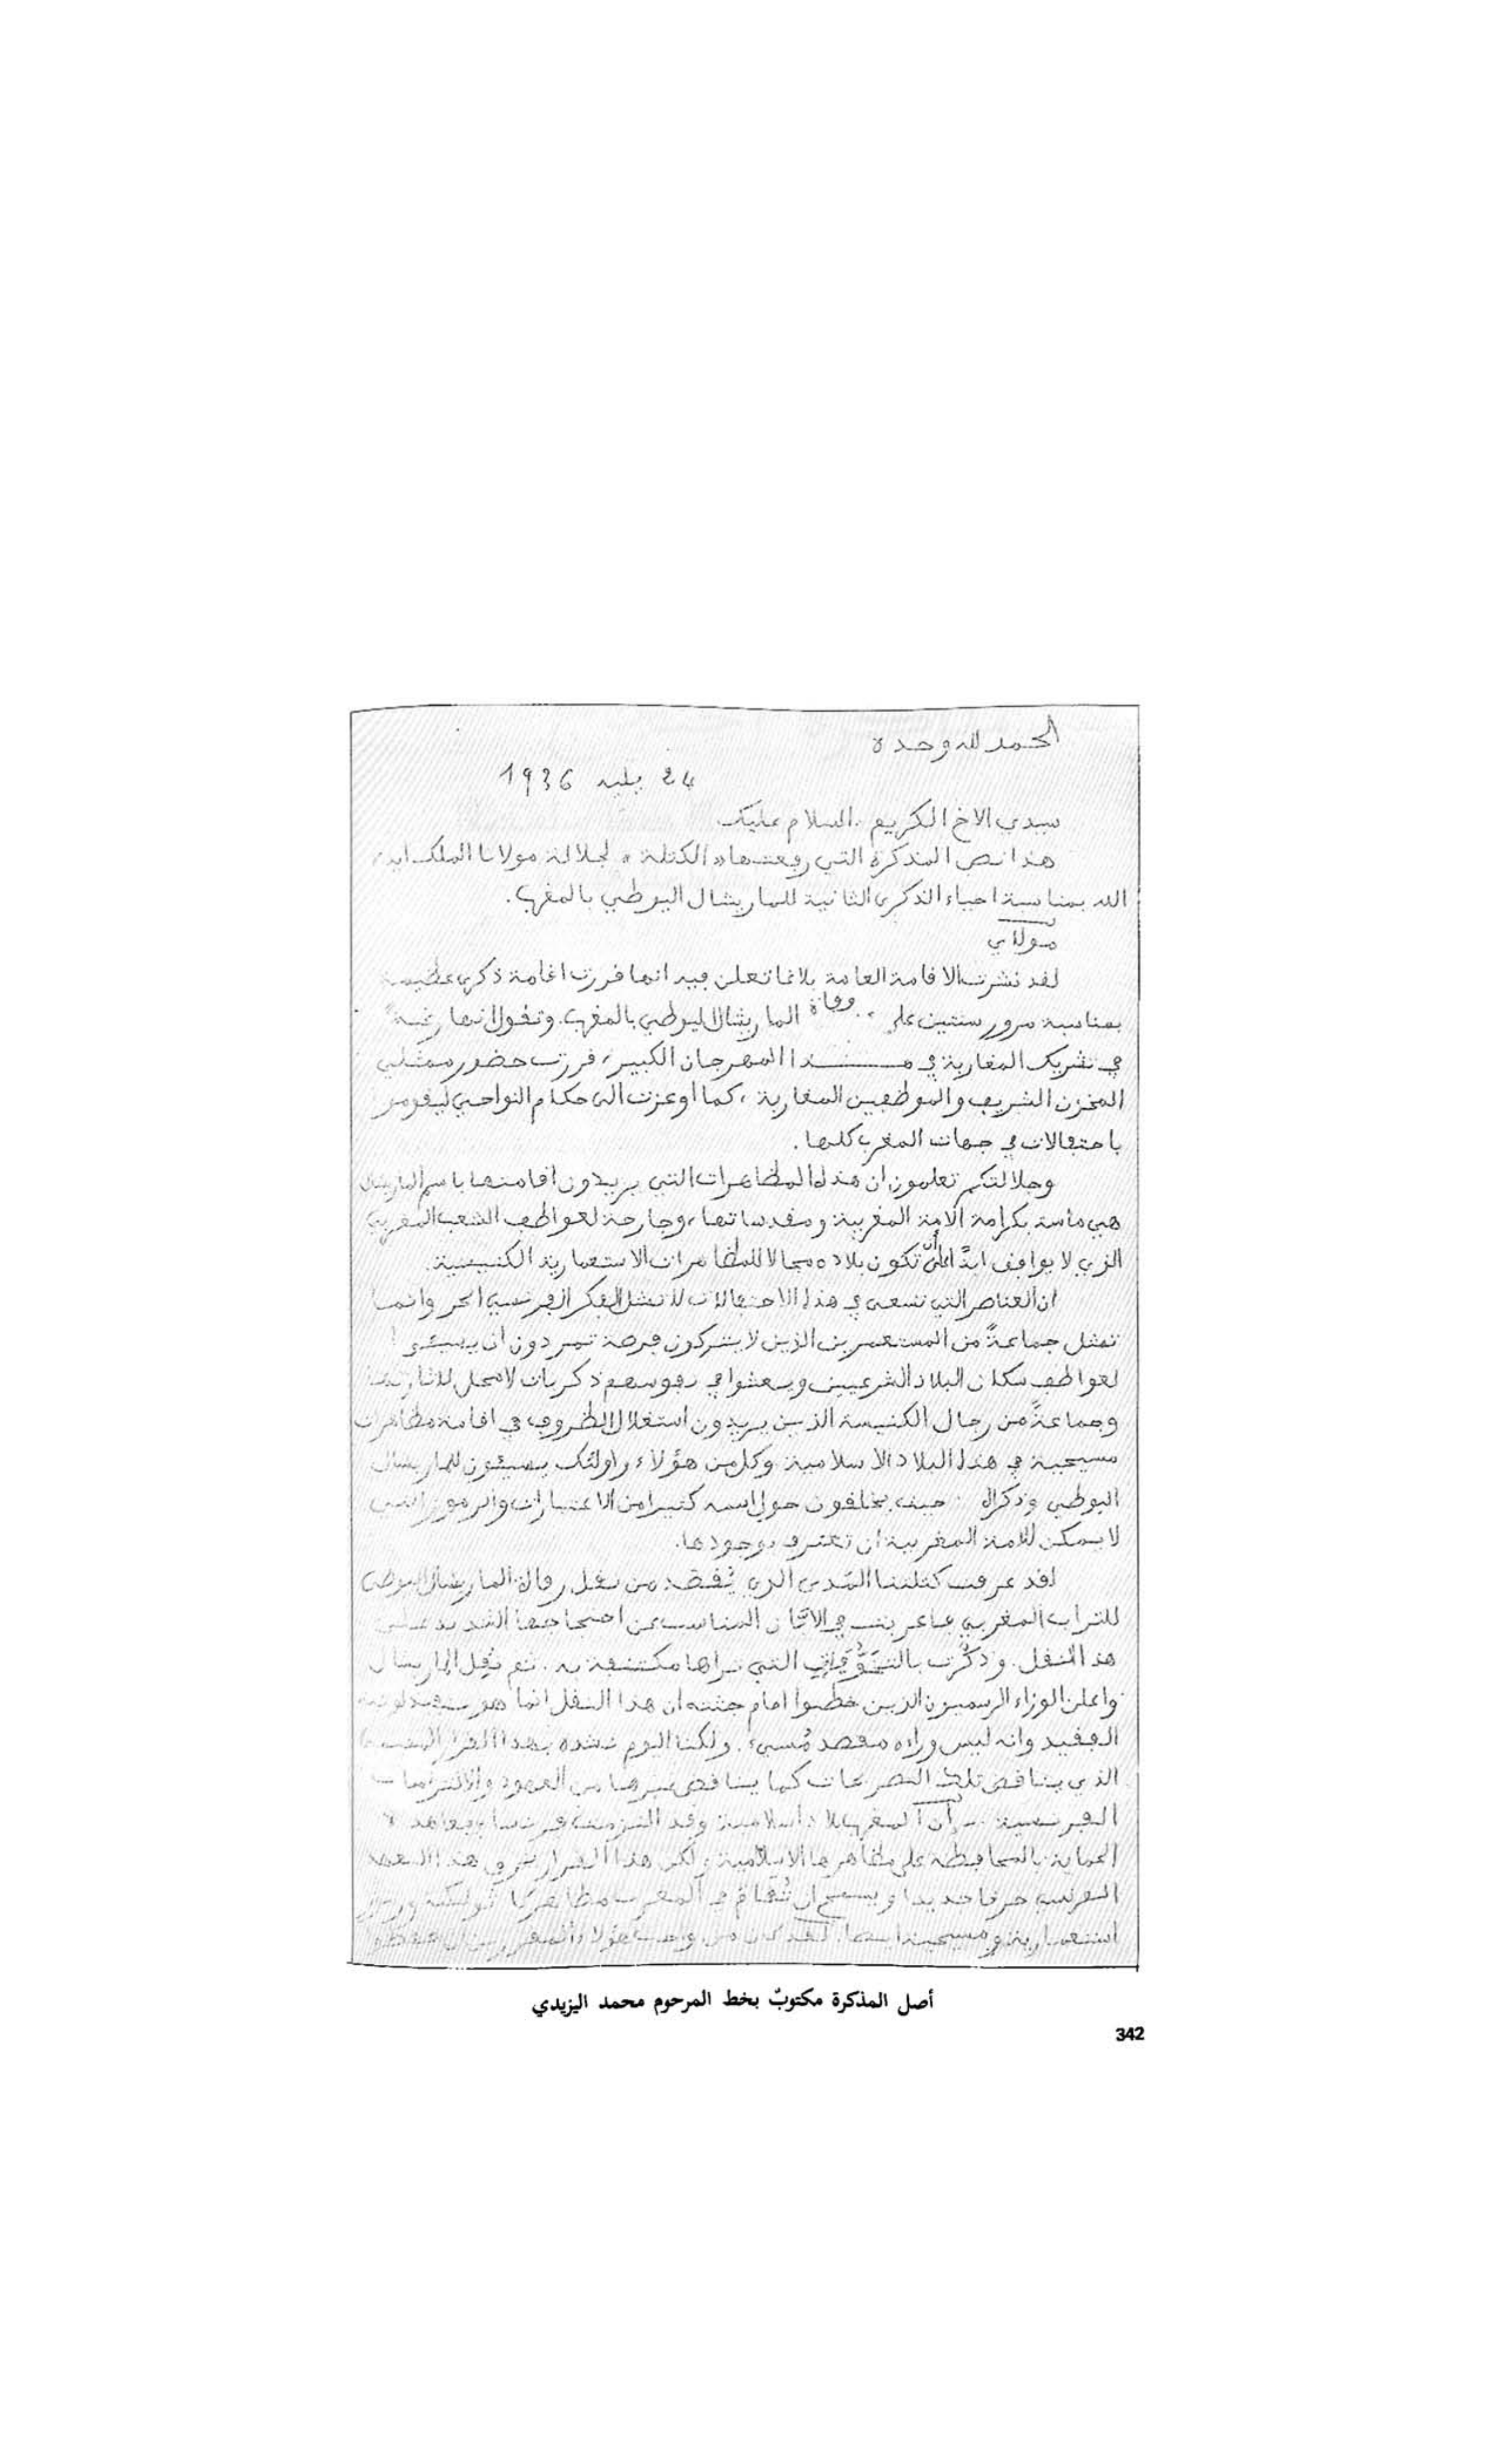 الحمد لله وحده
24 يليه 1936
سيدي الاخ الكريم . السلام عليك
هذا نص المذكرة التي رفعتها « الكتلة » لجلالة مولانا الملك ايده
الله بمناسبة احياء الذكرى الثانية للماريشال اليوطي بالمغرب .
مولاي
لقد نشرت الاقامة العامة بلاغا تعلن فيه انها قررت اقامة ذكرى عظيمة
بمناسبة مرور سنتين على وفاة الماريشال ليوطي بالمغرب . وتقول انها رغبة
في تشريك المغاربة في هذا المهرجان الكبير ، قررت حضور ممثلي
المخزن الشريف والموظفين المغاربة ، كما اوعزت الى حكام النواحي ليقوموا
باحتفالات في جهات المغرب كلها .
وجلالتكم تعلمون ان هذه المظاهرات التي يريدون اقامتها باسم الماريشال
هي ماسة بكرامة الامة المغربية ومقدساتها ، وجارحة لعواطف الشعب المغربي
الذي لا يوافق ابدًا على أن تكون بلاده مجالا للمظاهرات الاستعمارية الكنيسية .
ان العناصر التي تسعى في هذه الاحتفالات لا تمثل الفكر الفرنسي الحر وانما
تمثل جماعةً من المستعمرين الذين لا يتركون فرصة تمر دون ان يسيئوا
لعواطف سكان البلاد الشرعيين ويبعثوا في نفوسهم ذكريات لا محل لاثارتها
وجماعةً من رجال الكنيسة الذين يريدون استغلال الظروف في اقامة مظاهرات
مسيحية في هذه البلاد الاسلامية وكل من هؤلاء واولئك يسيئون للماريشال
اليوطي وذكراه حيث يخلقون حول اسمه كثيرا من الاعتبارات والرموز التي
لا يمكن للامة المغربية ان تعترف بوجودها .
لقد عرفت كتلتنا المدى الذي يُقصد من نقل رفاة الماريشال اليوطي
للتراب المغربي فاعربت في الابّان المناسب عن احتجاجها الشديد على
هذا النقل . وذكّرت بالتخوُّفات التي تراها مكتنفة به . ثم نُقل الماريشال
واعلن الوزراء الرسميون الذين خطبوا امام جثته ان هذا النقل انما هو تنفيذ لوصية
الفقيد وانه ليس وراءه مقصد مُسيء . ولكننا اليوم بهذا القرار
الذي يناقض تلك التصريحات كما يناقض غيرها من العهود والالتزامات
الفرنسية . إن المغرب بلاد اسلامية وقد التزمت فرنسا بمعاهدة
الحماية بالمحافظة على مظاهرها الاسلامية ولكن هذا القرار هذا التعهد
الفرنسي خرقا جديدا ويسمح ان تُقام في المغرب مظاهر
استعمارية ومسيحية ايضا . لقد كان من واجب هؤلاء
أصل المذكرة مكتوبٌ بخط المرحوم محمد اليزيدي
342